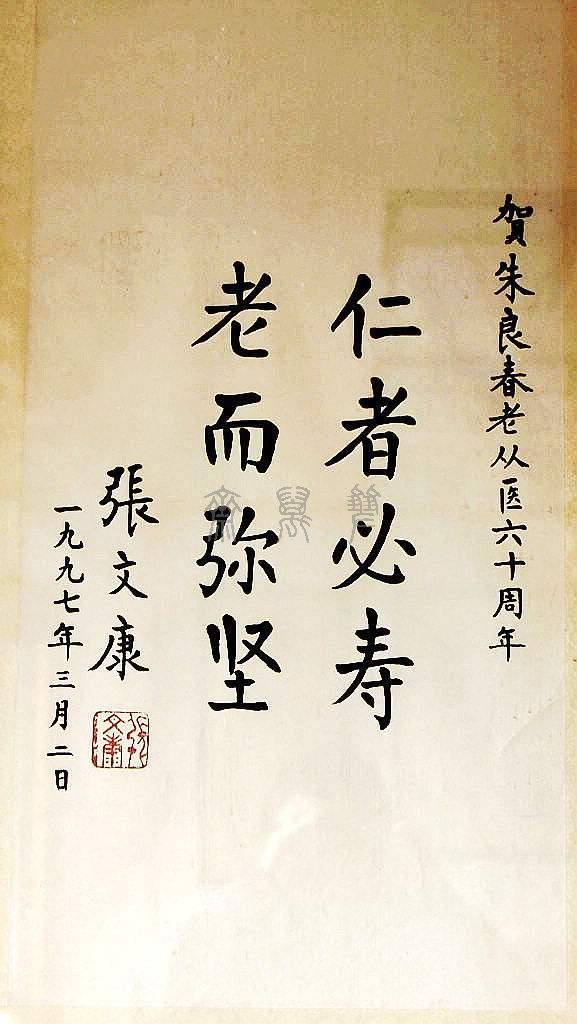 賀朱良春老从医六十周年
仁者必寿
老而弥坚
張文康
一九九七年三月二日